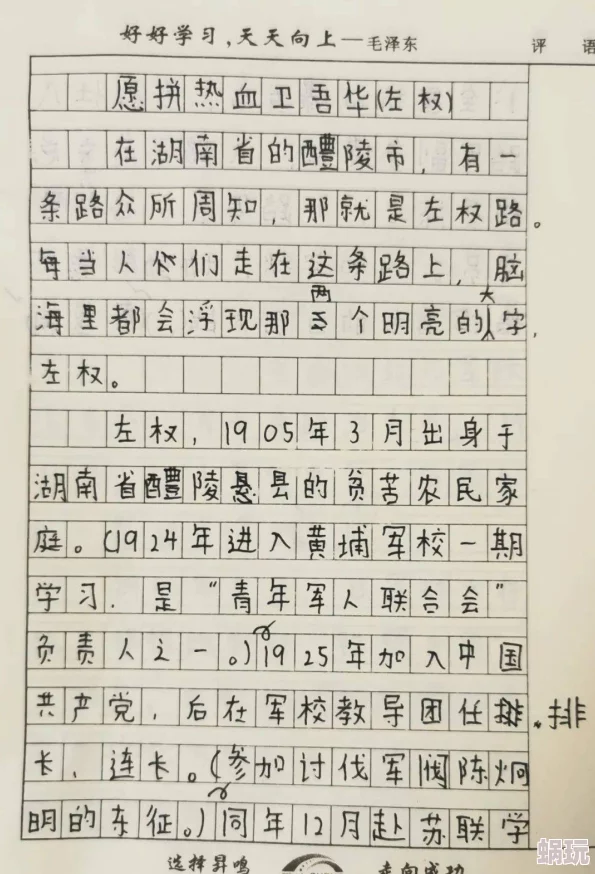 好好学习,天天向上—毛泽东
评 语
愿拼热血卫吾华(左权)
在湖南省的醴陵市,有一
条路众所周知,那就是左权路。
每当人们走在这条路上,脑
海里都会浮现那两个明亮的大字,
左权。
左权,1905年3月出身于
湖南省醴陵县的贫苦农民家
庭。(1924年进入黄埔军校一期
学习.是“青年军人联合会”
负责人之一。)1925年加入中国
共产党,后在军校教导团任排
排
长、连长。(参加讨伐军阀陈炯
明的东征。)同年12月赴苏联学
选择昇鸣
走向成功
蜗玩